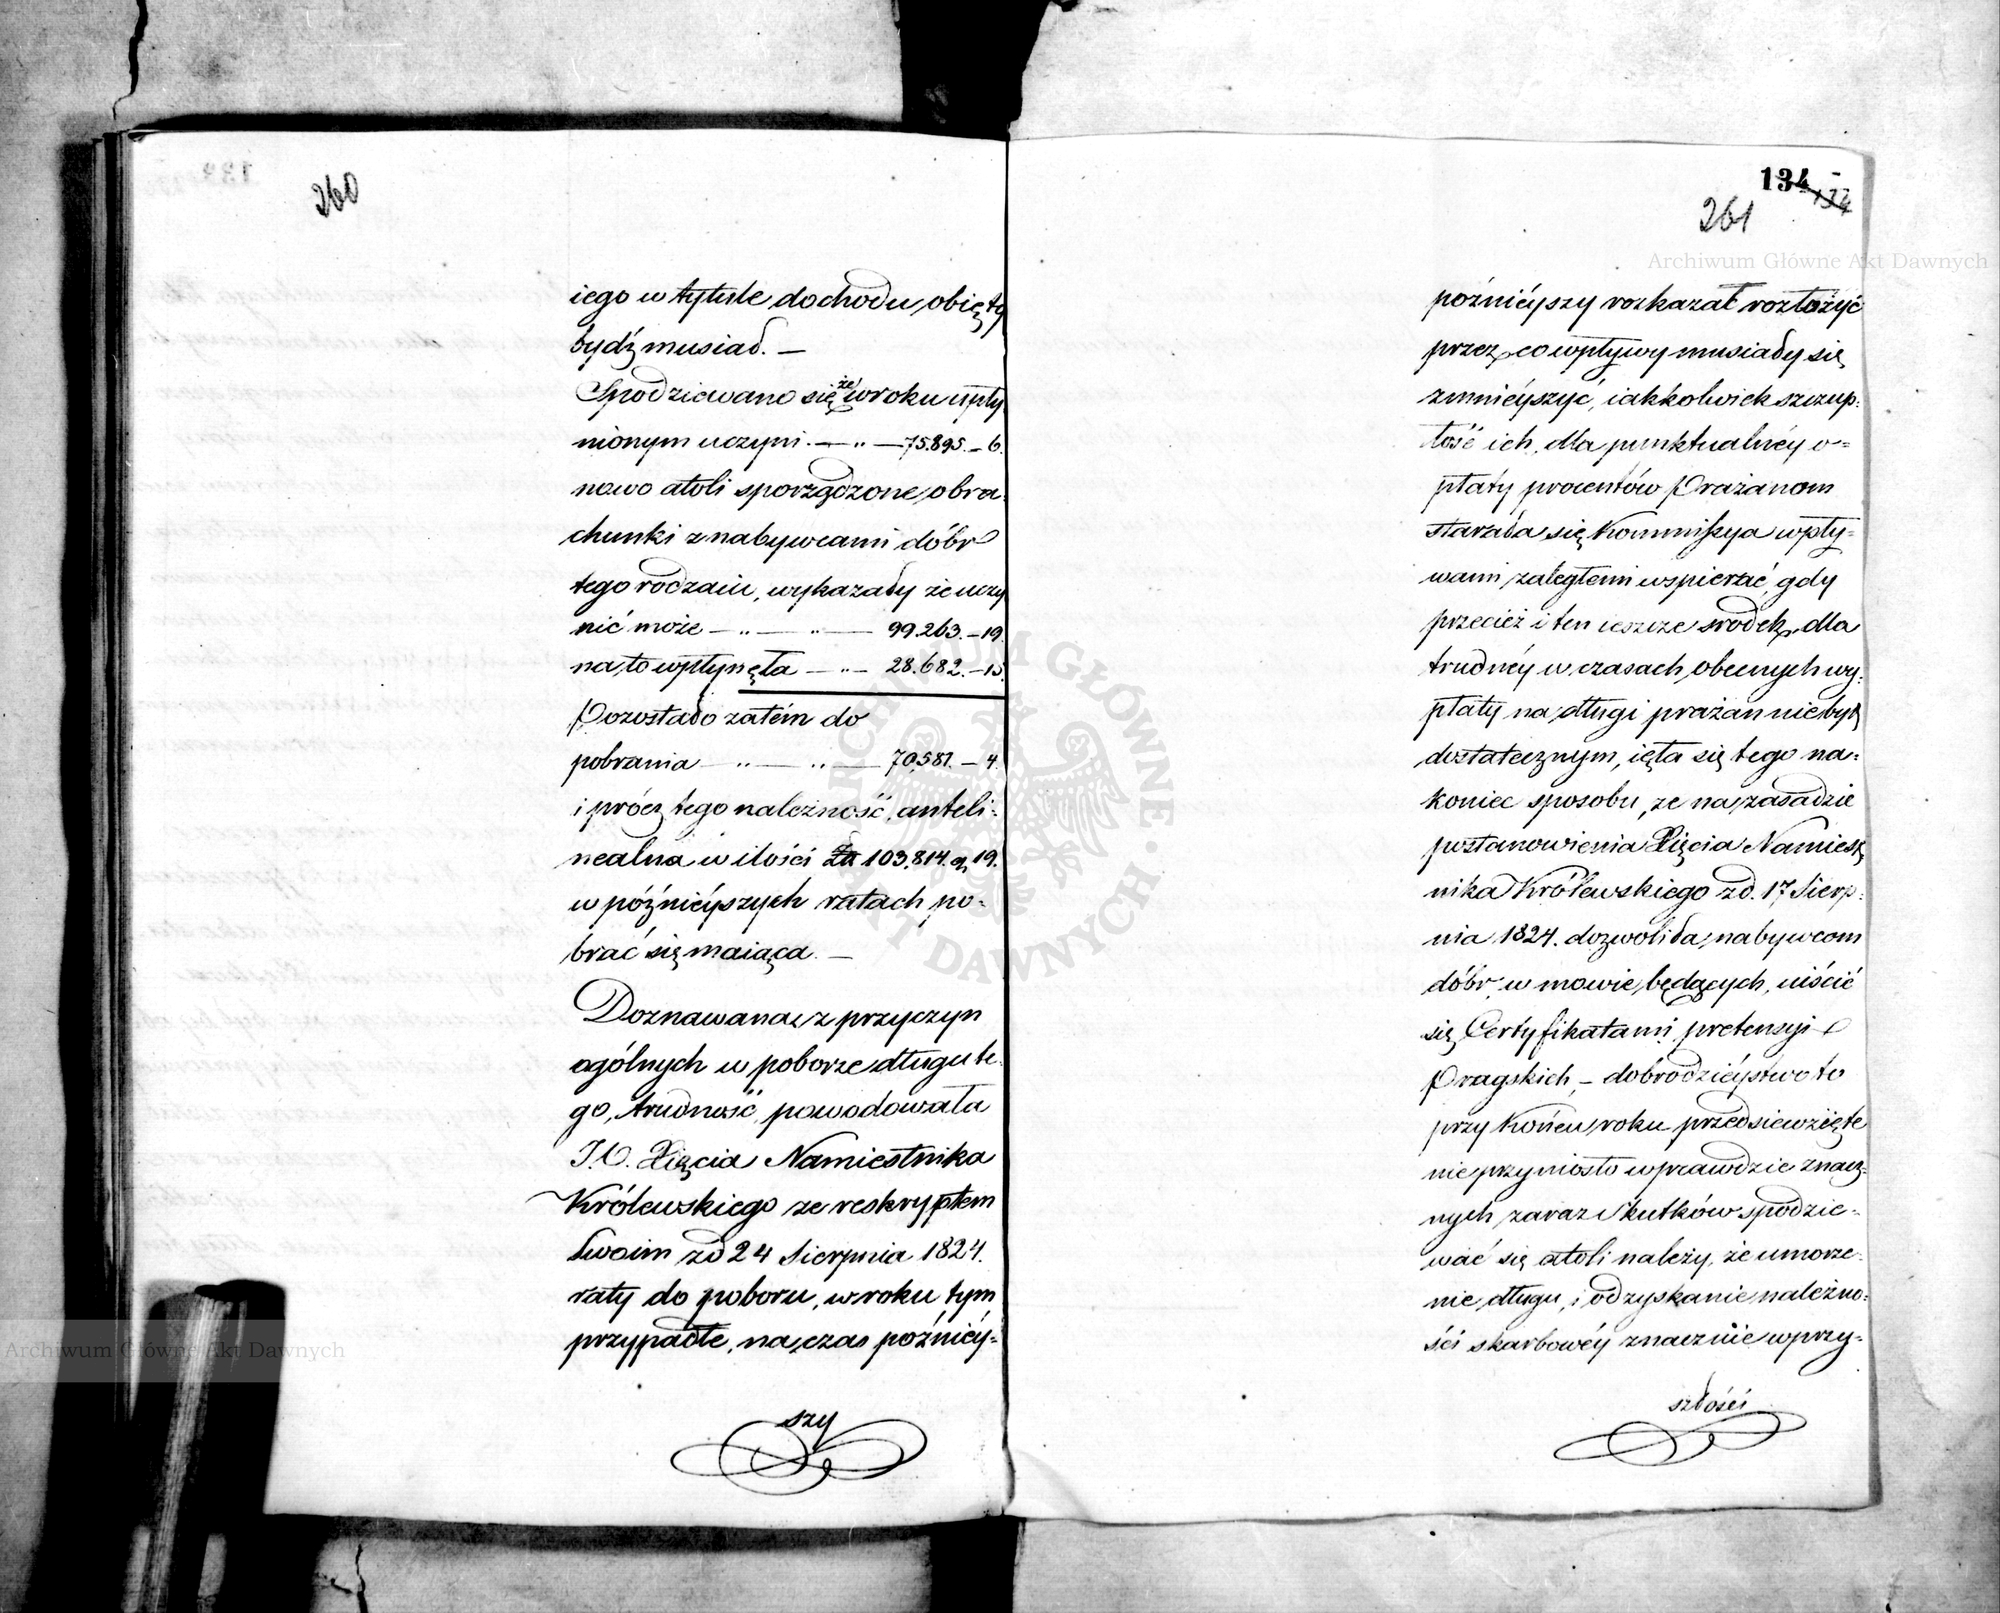 260
iego w tytule dochodu obięty
bydź musiał. —
Spodziewano się że w roku upły
nionym uczyni. — „ — 75.895. — 6.
nowo atoli sporządzone obra-
chunki z nabywcami dóbr
tego rodzaiu, wykazały że uczy
nić może — „ — „ — 99.263. — 19
na to wpłynęła — „ — 28.682. — 15.
Pozostało zatém do
pobrania — „ — „ — 70,581. — 4.
i prócz tego należność anteli-
nealna w ilości Zł 103,814. g 19.
w późniéyszych ratach po-
brać się maiąca. —
Doznawana z przyczyn
ogólnych w poborze długu te-
go, trudność powodowała
J.O. Xięcia Namiestnika
Królewskiego że reskryptem
Swoim zd 24 Sierpnia 1824.
raty do poboru, w roku tym
przypadłe, na czas poźniéy-
szy
134
134
261
poźniéyszy rozkazał rozłożyć
przez co wpływy musiały się
zmniéyszyć, iakkolwiek szczup-
łość ich, dla punktualnéy o-
płaty procentów Prażanom
starała się Kommissya wpły-
wami zaległemi wspierać, gdy
przecież i ten ieszcze srodek, dla
trudnéy w czasach obecnych wy-
płaty na długi prażan nie był
dostatecznym, ięła się tego na-
koniec sposobu, że na zasadzie
postanowienia Xięcia Namiest
nika Królewskiego zd. 17 Sierp-
nia 1824. dozwoliła nabywcom
dóbr w mowie będących, uiścić
się Certyfikatami pretensyi
Pragskich, — dobrodzieystwo to
przy końcu roku przedsiewzięte
nie przyniosło wprawdzie znacz-
nych zaraz skutków spodzie-
wać się atoli należy, że umorze-
nie długu, i odzyskanie należno-
ści skarbowéy znacznie w przy-
szłości
Archiwum Główne Akt Dawnych
Archiwum Główne Akt Dawnych
ARCHIWUM GŁÓWNE AKT DAWNYCH